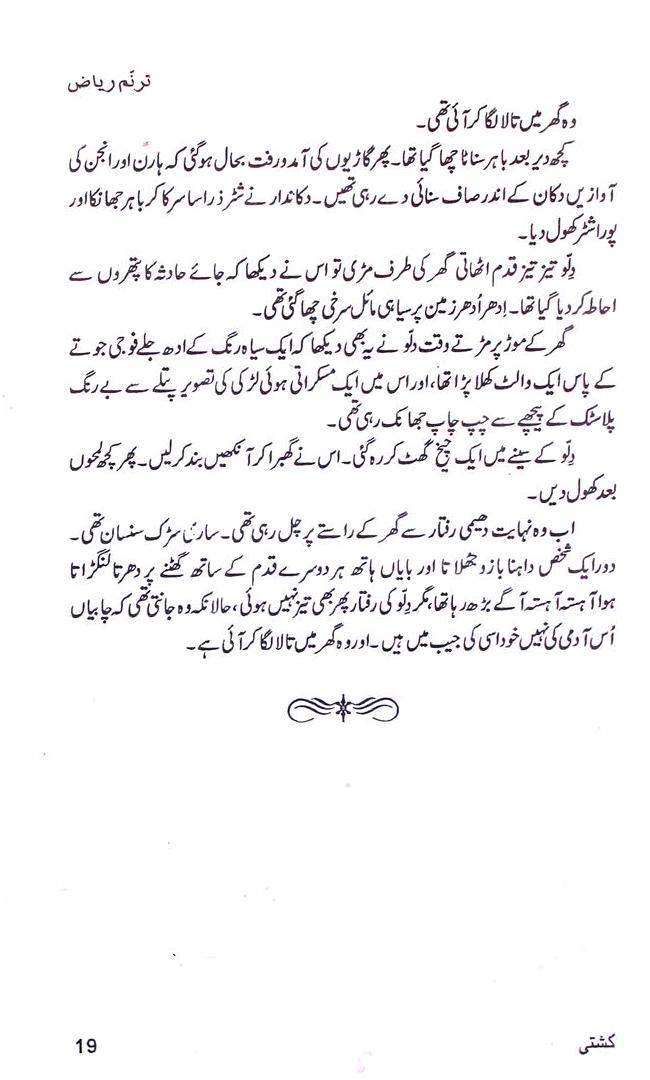 ترنّم ریاض
وہ گھر میں تالا لگا کر آئی تھی۔
کچھ دیر بعد باہر سناٹا چھا گیا تھا۔ پھر گاڑیوں کی آمد و رفت بحال ہوگئی کہ ہارن اور انجن کی
آوازیں دکان کے اندر صاف سنائی دے رہی تھیں۔ دکاندار نے شٹر ذرا سا سرکا کر باہر جھانکا اور
پورا شٹر کھول دیا۔
دِلّو تیز تیز قدم اٹھاتی گھر کی طرف مڑی تو اس نے دیکھا کہ جائے حادثہ کا پتھروں سے
احاطہ کر دیا گیا تھا۔ اِدھر اُدھر زمین پر سیاہی مائل سرخی چھا گئی تھی۔
گھر کے موڑ پر مڑتے وقت دلّو نے یہ بھی دیکھا کہ ایک سیاہ رنگ کے ادھ جلے فوجی جوتے
کے پاس ایک والٹ کھلا پڑا تھا، اور اس میں ایک مسکراتی ہوئی لڑکی کی تصویر پتلے سے بے رنگ
پلاسٹک کے پیچھے سے چپ چاپ جھانک رہی تھی۔
دِلّو کے سینے میں ایک چیخ گھٹ کر رہ گئی۔ اس نے گھبرا کر آنکھیں بند کر لیں۔ پھر کچھ لمحوں
بعد کھول دیں۔
اب وہ نہایت دھیمی رفتار سے گھر کے راستے پر چل رہی تھی۔ ساری سڑک سنسان تھی۔
دور ایک شخص داہنا بازو جھلاتا اور بایاں ہاتھ ہر دوسرے قدم کے ساتھ گھٹنے پر دھرتا لنگڑاتا
ہوا آہستہ آہستہ آگے بڑھ رہا تھا، مگر دِلّو کی رفتار پھر بھی تیز نہیں ہوئی، حالانکہ وہ جانتی تھی کہ چابیاں
اُس آدمی کی نہیں خود اسی کی جیب میں ہیں۔ اور وہ گھر میں تالا لگا کر آئی ہے۔
کشتی
19